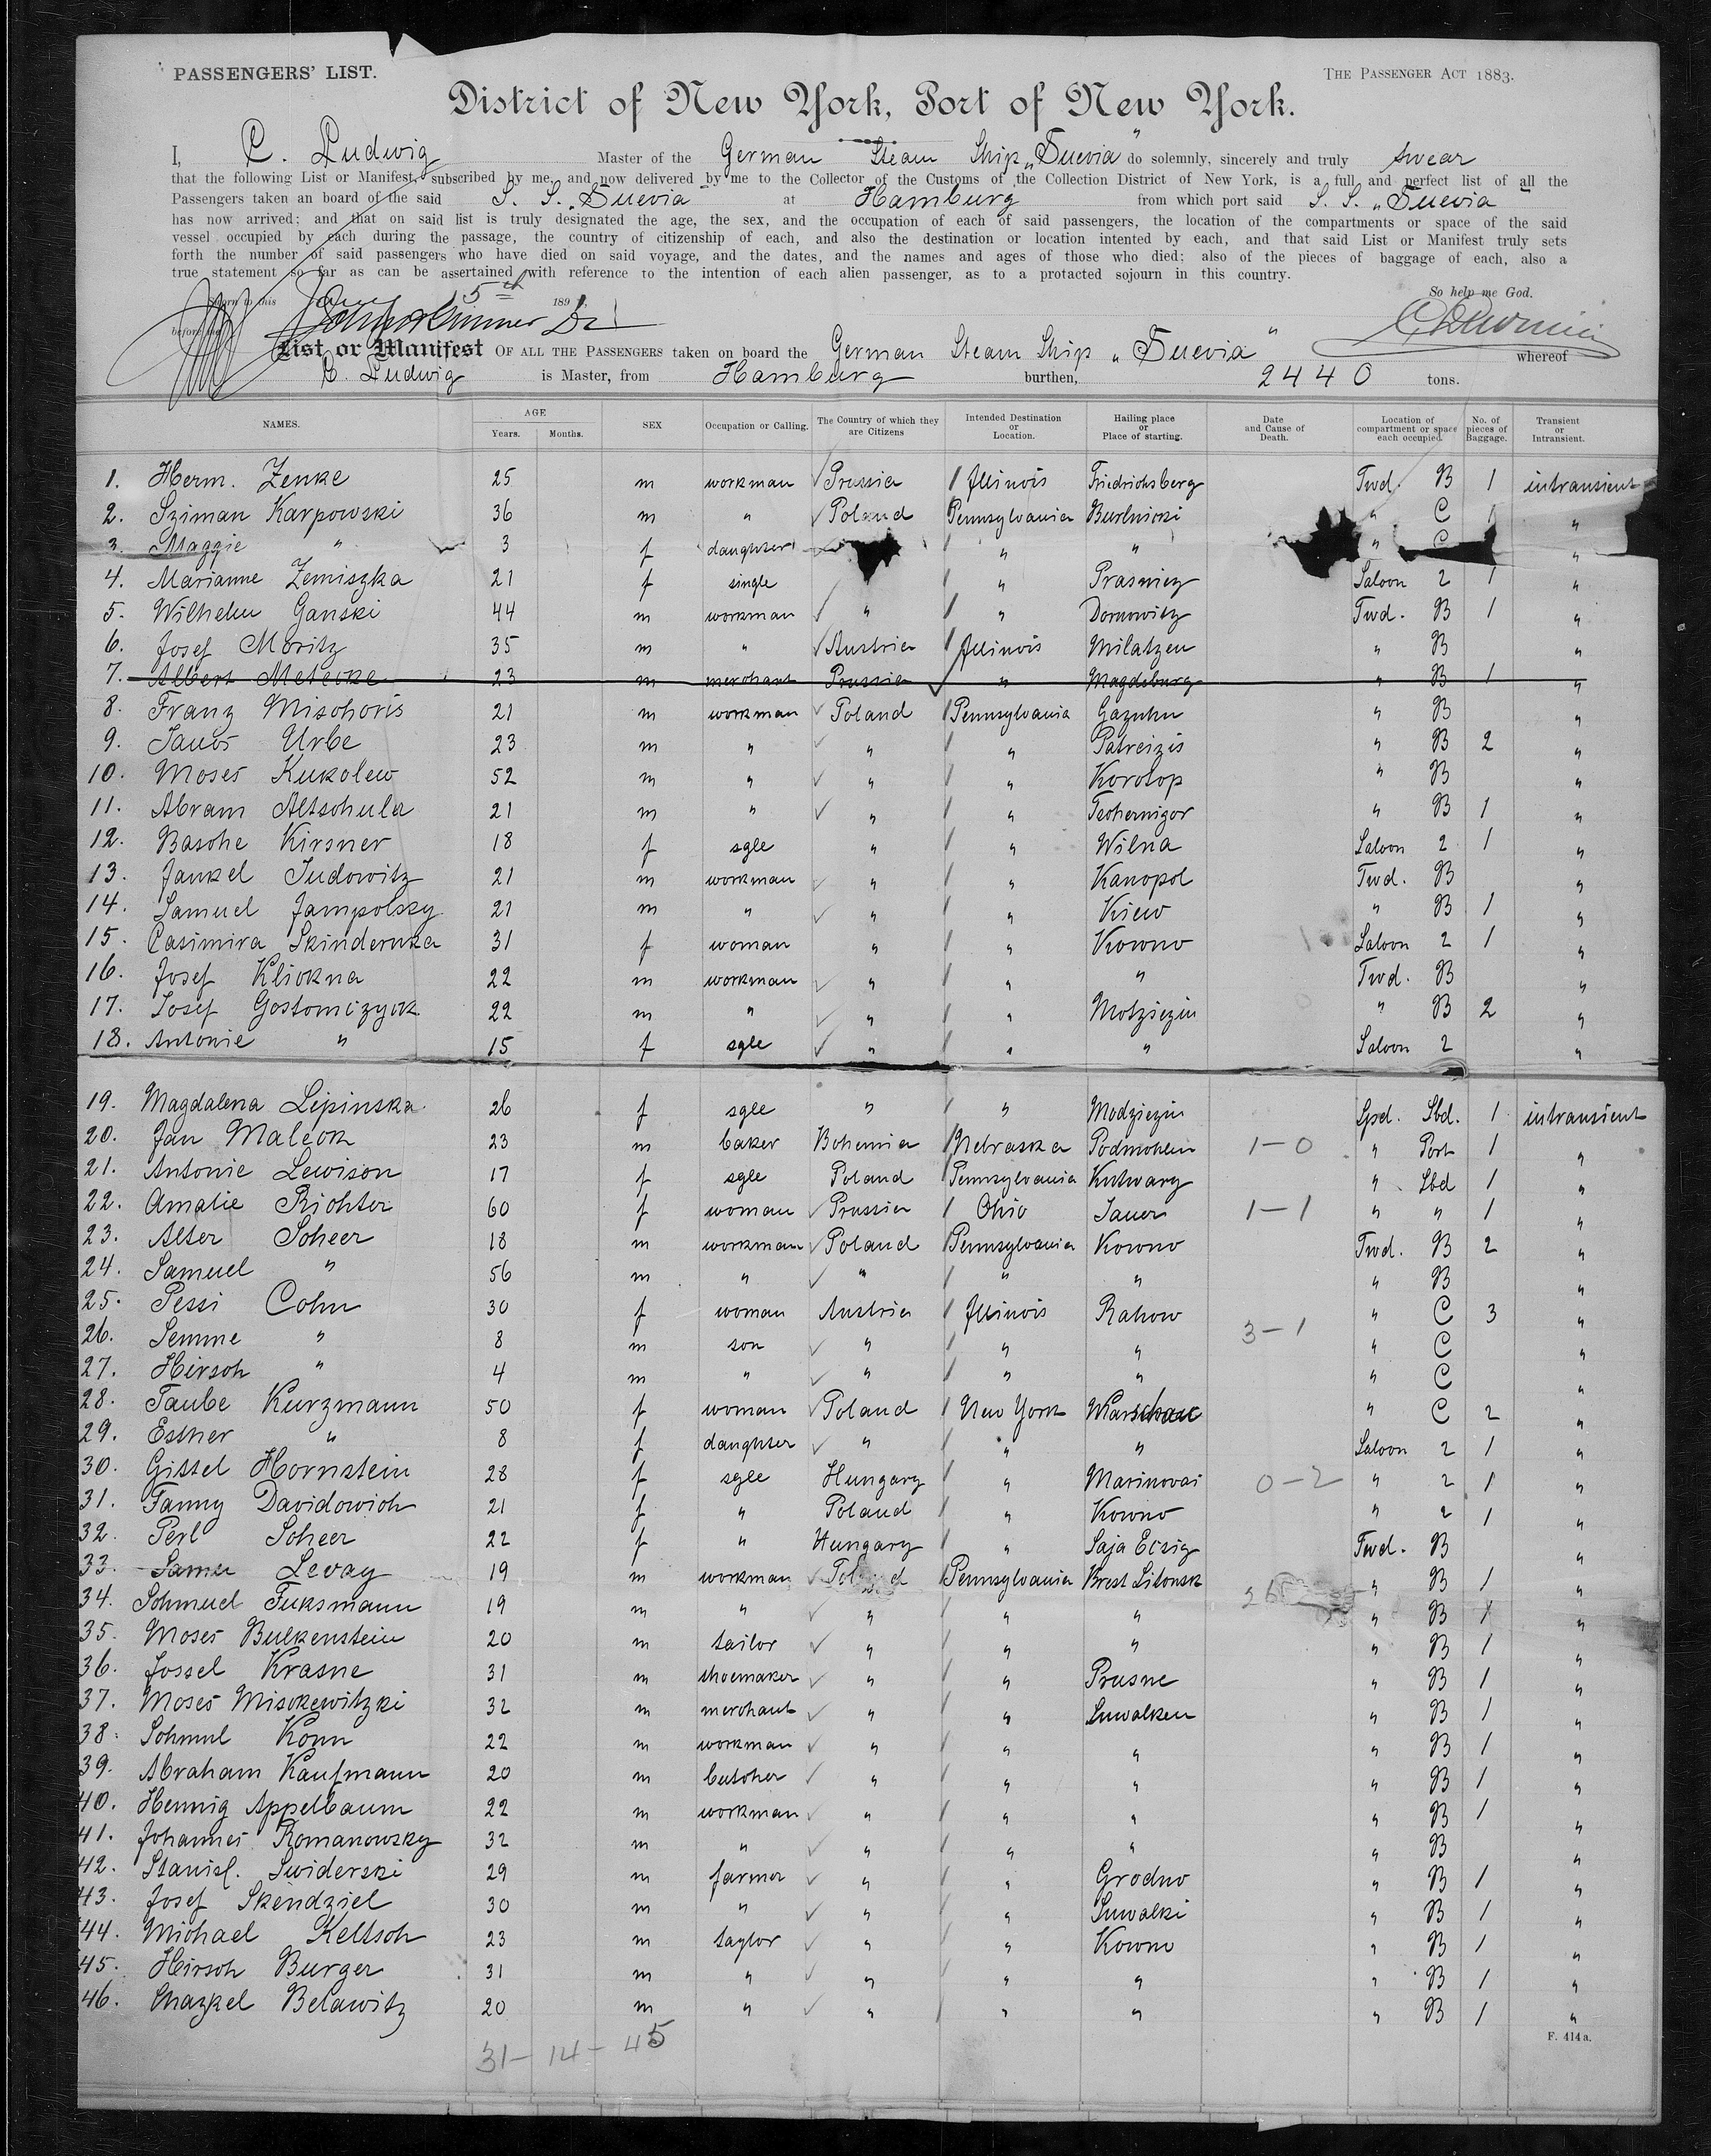 PASSENGERS' LIST.
THE PASSENGER ACT 1883.
District of New York, Port of New York.
I, C. Ludwig Master of the German Steam Ship „Suevia" do solemnly, sincerely and truly swear
that the following List or Manifest, subscribed by me, and now delivered by me to the Collector of the Customs of the Collection District of New York, is a full and perfect list of all the
Passengers taken an board of the said S. S. „Suevia" at Hamburg from which port said S. S. „Suevia"
has now arrived; and that on said list is truly designated the age, the sex, and the occupation of each of said passengers, the location of the compartments or space of the said
vessel occupied by each during the passage, the country of citizenship of each, and also the destination or location intented by each, and that said List or Manifest truly sets
forth the number of said passengers who have died on said voyage, and the dates, and the names and ages of those who died; also of the pieces of baggage of each, also a
true statement so far as can be ascertained with reference to the intention of each alien passenger, as to a protacted sojourn in this country.
So help me God.
Sworn to this 15th 189
before me
List or Manifest OF ALL THE PASSENGERS taken on board the German Steam Ship „Suevia" whereof
C. Ludwig is Master, from Hamburg burthen, 2440 tons.
NAMES. AGE Years. Months. SEX Occupation or Calling. The Country of which they are Citizens Intended Destination or Location. Hailing place or Place of starting. Date and Cause of Death. Location of compartment or space each occupied. No. of pieces of Baggage. Transient or Intransient.
1. Herm. Zenke 25 m workman Prussia Illinois Friedrichsberg Twd. B 1 intransient
2. Sziman Karpowski 36 m " Poland Pennsylvania Burlnicki " C 1 "
3. Maggie " 3 f daughter " " " C "
4. Marianne Zemiszka 21 f single " Prasnicz Saloon 2 1 "
5. Wilhelm Ganski 44 m workman " " Dornowitz Twd. B 1 "
6. Josef Moritz 35 m " Austria Illinois Milatzen " B "
7. Albert Metecke 23 m merchant Prussia " Magdeburg " B 1 "
8. Franz Mischoris 21 m workman Poland Pennsylvania Gazuhn " B "
9. Janos Urbe 23 m " " " Patreizis " B 2 "
10. Moses Kukolew 52 m " " " Korolop " B "
11. Abram Altschula 21 m " " " Tschernigor " B 1 "
12. Basche Kirsner 18 f sgle " " Wilna Saloon 2 1 "
13. Jankel Judowitz 21 m workman " " Kanopol Twd. B "
14. Samuel Jampolsky 21 m " " " Kiew " B 1 "
15. Casimira Skindernka 31 f woman " " Kowno Saloon 2 1 "
16. Josef Klickna 22 m workman " " " Twd. B "
17. Josef Gostomczyck 22 m " " " Motziezin " B 2 "
18. Antonie " 15 f sgle " " " Saloon 2 "
19. Magdalena Lipinska 26 f sgle " " Modziezin Spd. Sbd. 1 intransient
20. Jan Maleck 23 m baker Bohemia Nebraska Podmoklen 1-0 " Port 1 "
21. Antonie Lewison 17 f sgle Poland Pennsylvania Kutwary " Sbd 1 "
22. Amalie Richter 60 f woman Prussia Ohio Jauer 1-1 " " 1 "
23. Alter Scheer 18 m workman Poland Pennsylvania Kowno Twd. B 2 "
24. Samuel " 56 m " " " " " B "
25. Pessi Cohn 30 f woman Austria Illinois Rahow " C 3 "
26. Semme " 8 m son " " " 3-1 " C "
27. Hirsch " 4 m " " " " " C "
28. Taube Kurzmann 50 f woman Poland New York Warschau " C 2 "
29. Esther " 8 f daughter " " " Saloon 2 1 "
30. Gittel Hornstein 28 f sgle Hungary " Marinovai 0-2 " 2 1 "
31. Fanny Davidowich 21 f " Poland " Kowno " 2 1 "
32. Perl Scheer 22 f " Hungary " Saja Ecsig Twd. B "
33. Samu Levay 19 m workman Poland Pennsylvania Brest Litonsk " B 1 "
34. Schmuel Fuksmann 19 m " " " " " B 1 "
35. Moses Bulkenstein 20 m tailor " " " " B 1 "
36. Jossel Krasne 31 m shoemaker " " Prusne " B 1 "
37. Moses Misckewitzki 32 m merchant " " Suwalken " B 1 "
38. Schmul Konn 22 m workman " " " " B 1 "
39. Abraham Kaufmann 20 m butcher " " " " B 1 "
40. Hennig Appelbaum 22 m workman " " " " B 1 "
41. Johannes Romanowsky 32 m " " " " " B "
42. Stanisl. Swiderski 29 m farmer " " Grodno " B 1 "
43. Josef Skendziel 30 m " " " Suwalki " B 1 "
44. Michael Keltsch 23 m taylor " " Kowno " B 1 "
45. Hirsch Burger 31 m " " " " " B 1 "
46. Chazkel Belawitz 20 m " " " " " B 1 "
31- 14- 45
F. 414a.